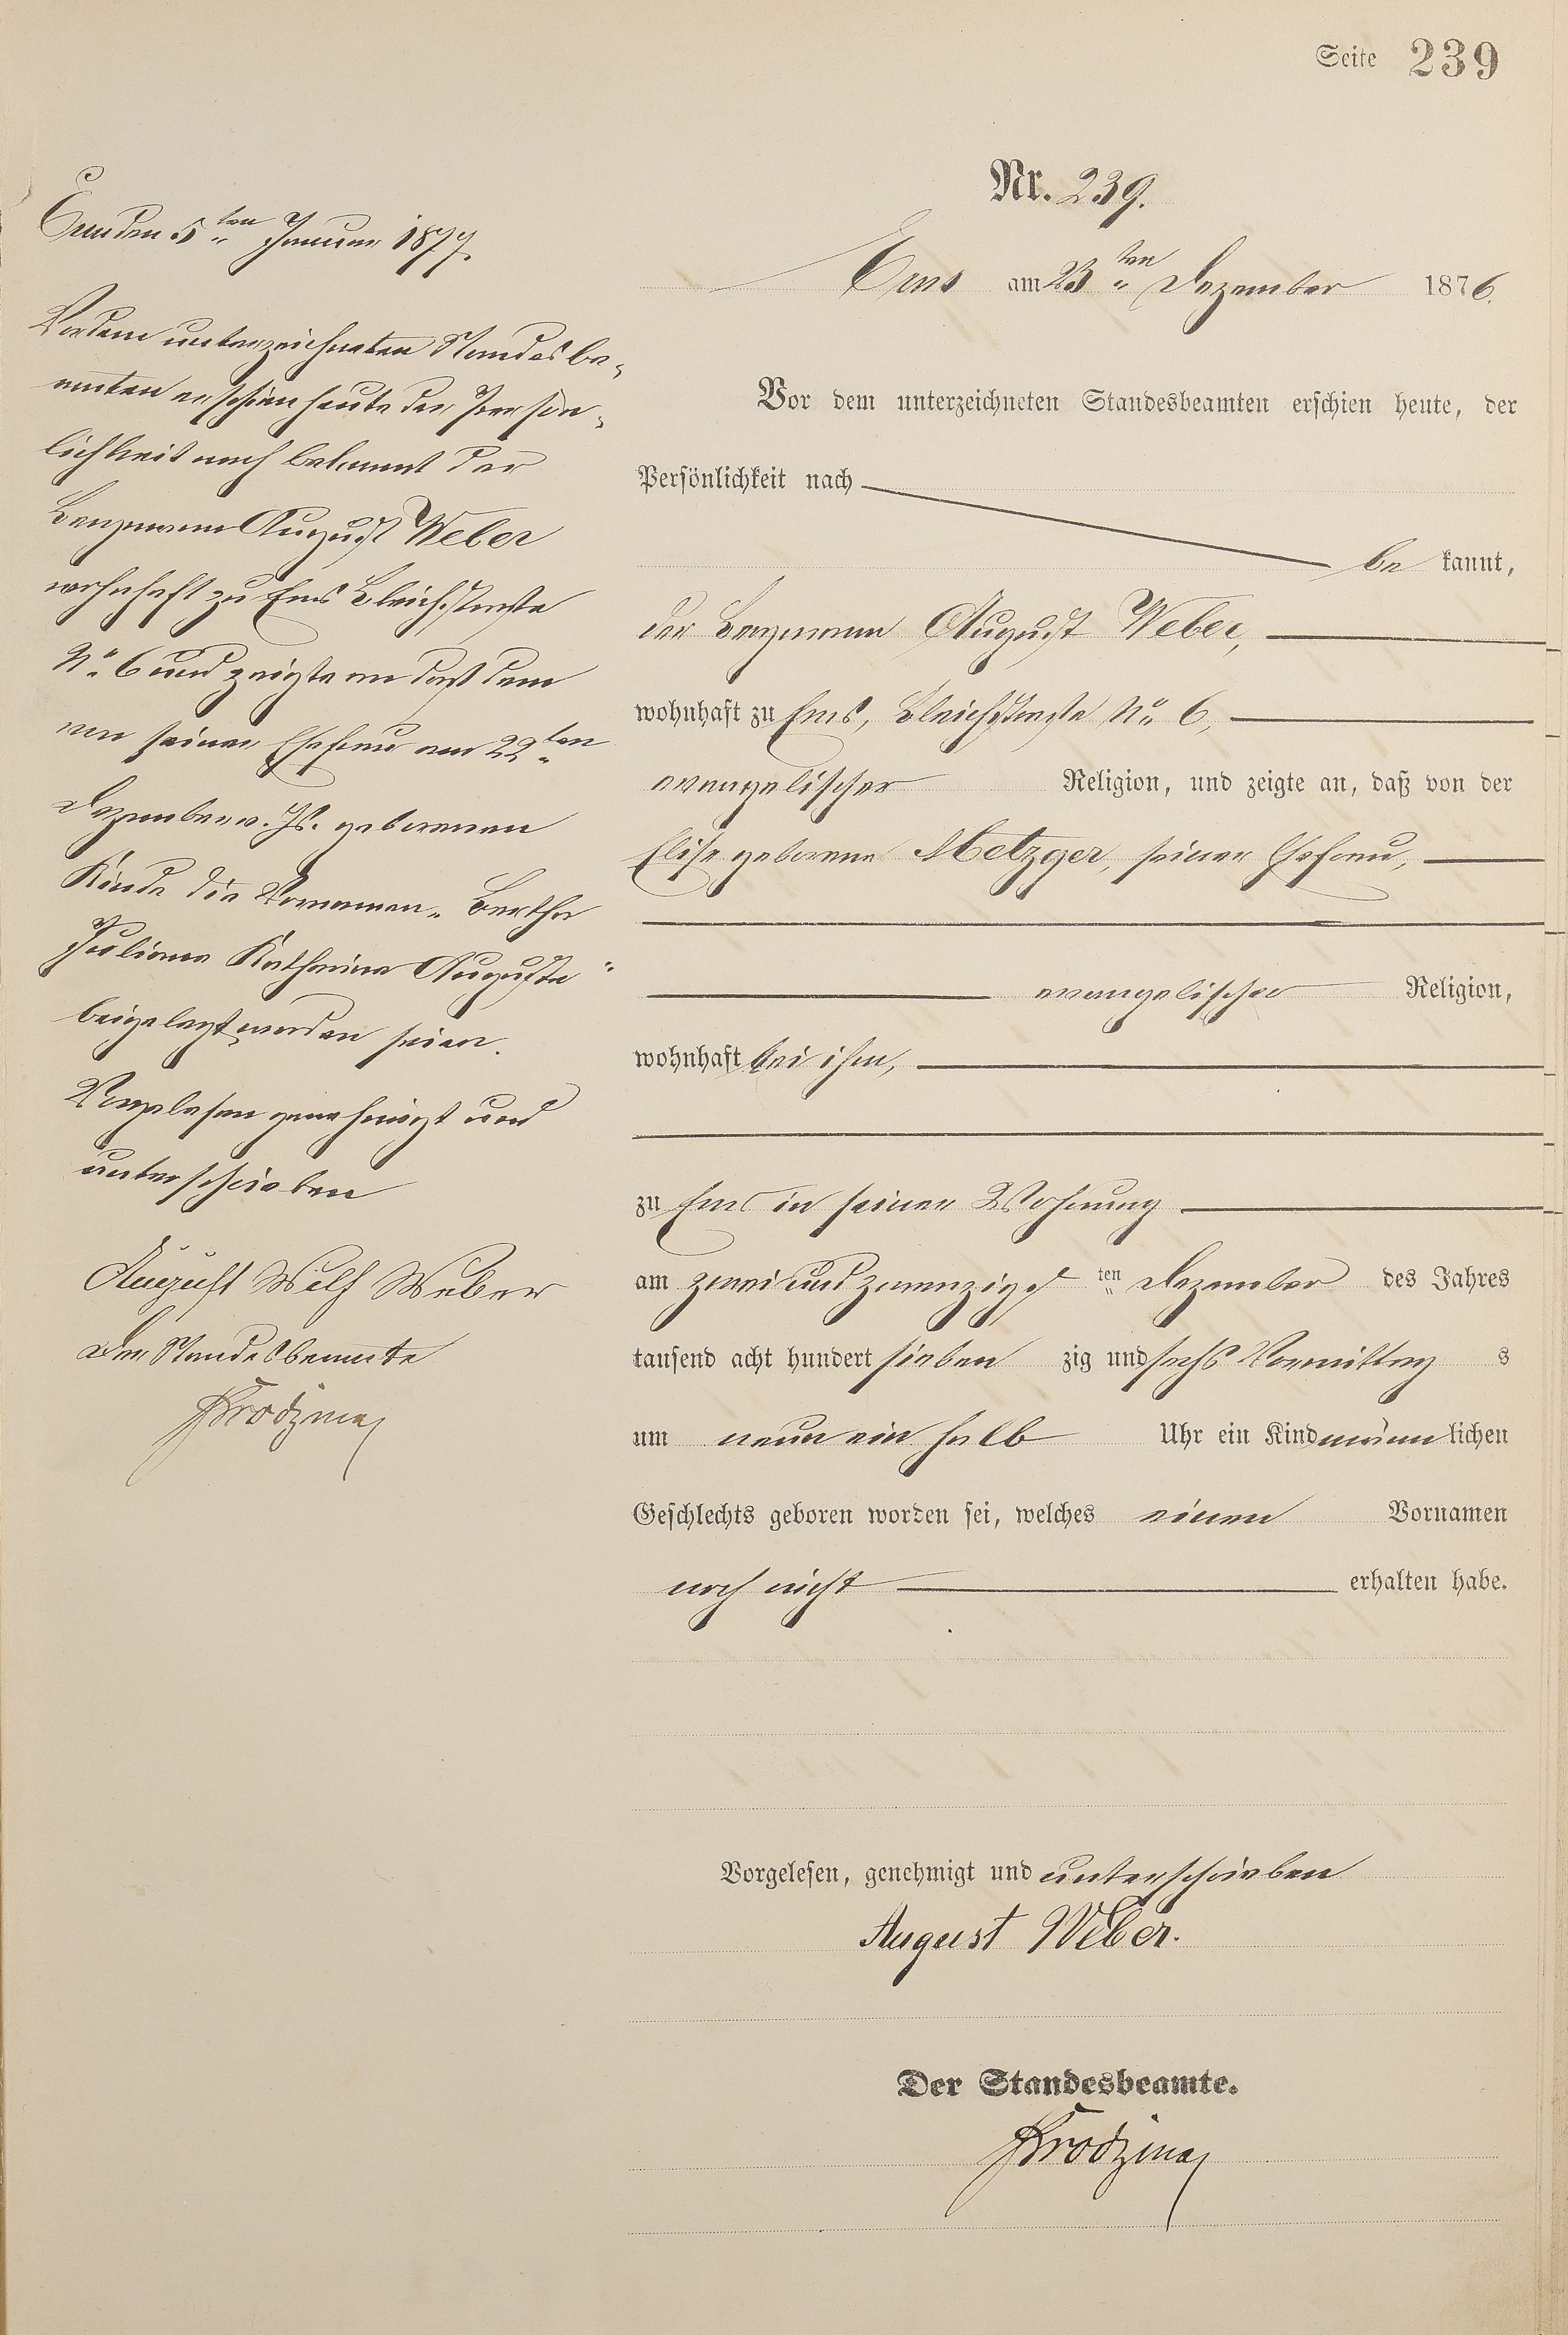 Seite 239
Nr. 239.
Ems am 23ten Dezember 1876.
Vor dem unterzeichneten Standesbeamten erschien heute, der
Persönlichkeit nach
be kannt,
der Bergmann August Weber,
wohnhaft zu Ems, Bleichstraße No. 6,
evangelischer Religion, und zeigte an, daß von der
Elise geborene Metzger, seiner Ehefrau,
evangelischer Religion,
wohnhaft bei ihm,
zu Ems in seiner Wohnung
am zweiundzwanzigsten Dezember des Jahres
tausend acht hundert sieben zig und sechs Vormittags
um neun ein halb Uhr ein Kind männlichen
Geschlechts geboren worden sei, welches einen Vornamen
noch nicht erhalten habe.
Vorgelesen, genehmigt und unterschrieben
August Weber.
Der Standesbeamte.
Ems den 5ten Januar 1877.
Vor dem unterzeichneten Standesbe-
amten erschien heute der Person-
lichkeit nach bekannt der
Bergmann August Weber
wohnhaft zu Ems Bleichstraße
No. 6 und zeigte an daß dem
von seiner Ehefrau am 22ten
Dezember v. Js. geborenen
Kinde die Vornamen „Bertha
Juliana Katharina Auguste"
beigelegt worden seien.
Vorgelesen genehmigt und
unterschrieben
August Wilh Weber
Der Standesbeamte